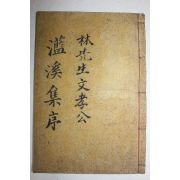 林先生文孝公
濫溪集序